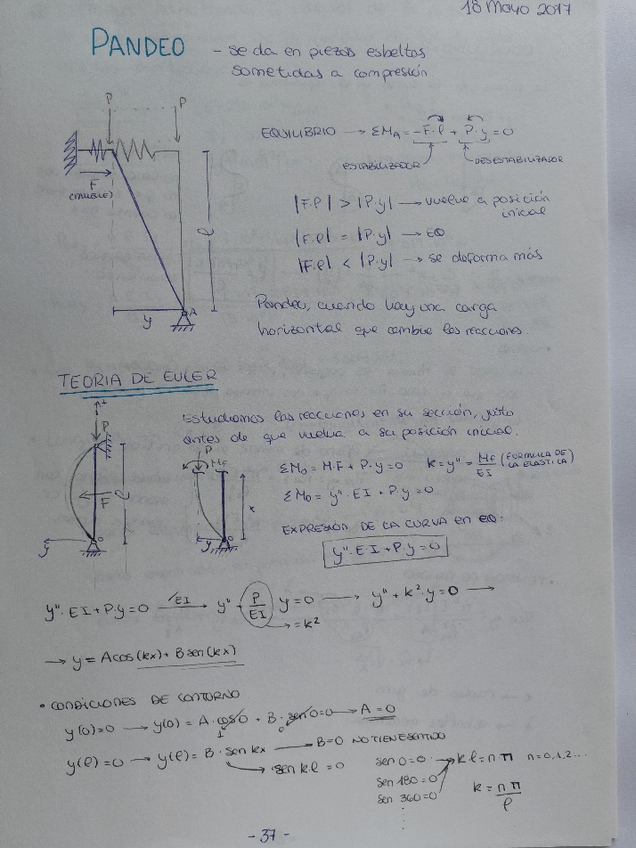 18 Mayo 2017
PANDEO - se da en piezas esbeltas
sometidas a compresión
P P
EQUILIBRIO → ΣM_A = -F·l + P·y = 0
ESTABILIZADOR DESESTABILIZADOR
F
(muelle)
l
|F·l| > |P·y| → vuelve a posición
inicial
|F·l| = |P·y| → EQ
|F·l| < |P·y| → se deforma más
A
y
Pandeo, cuando hay una carga
horizontal que cambie las reacciones.
TEORIA DE EULER
Estudiamos las reacciones en su sección, justo
antes de que vuelva a su posición inicial.
P
F
l
y
O
P
Mf
x
y
O
ΣM_O = Mf + P·y = 0 k = y'' = Mf/EI (FORMULA DE LA ELASTICA)
ΣM_O = y''·EI + P·y = 0
EXPRESION DE LA CURVA en EQ:
y''·E·I + P·y = 0
y''·EI + P·y = 0 →/EI y'' + P/EI y = 0 → y'' + k²·y = 0 →
→ = k²
→ y = A cos(kx) + B sen(kx)
• CONDICIONES DE CONTORNO
y(0) = 0 → y(0) = A·cos 0 + B·sen 0 = 0 → A = 0
1 0
y(l) = 0 → y(l) = B·sen kx → B = 0 NO TIENE SENTIDO
→ sen k·l = 0
sen 0 = 0 → k l = n π n = 0, 1, 2...
sen 180 = 0
sen 360 = 0
k = nπ/l
- 37 -